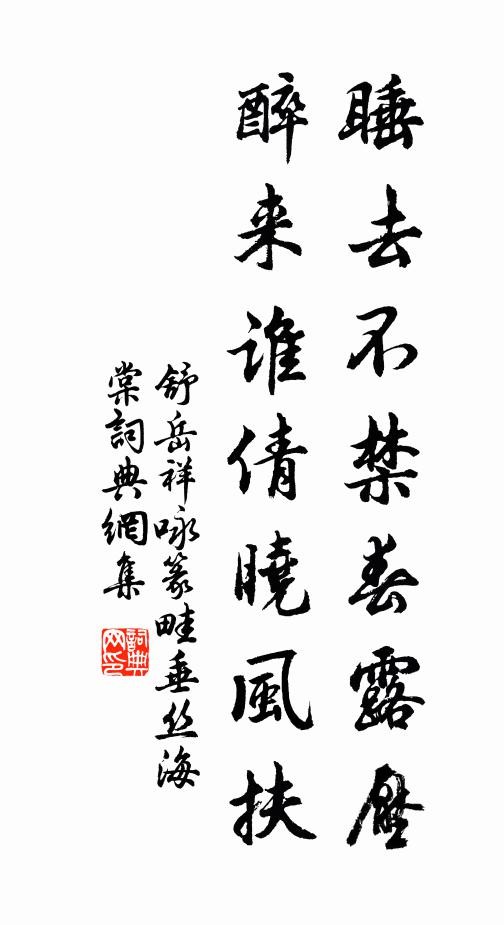 睡去不禁春露压
醉来谁倩晓風扶
舒岳祥咏篆畦垂丝海
棠詞典網集
詞典
网印